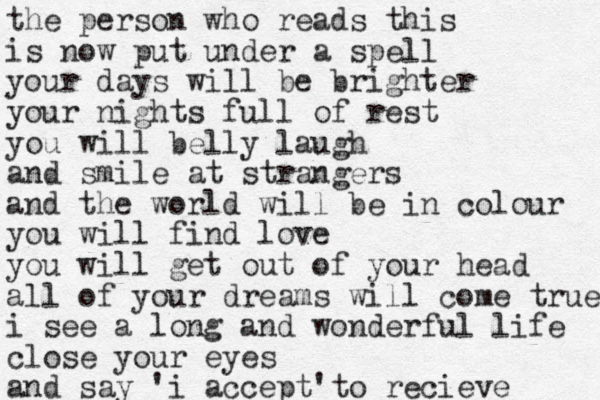 the person who reads this
is now put under a spell
your days will be brighter
your nights full of rest
you will belly laugh
and smile at strangers
and the world will be in colour
you will find love
you will get out of your head
all of your dreams will come true
i see a long and wonderful life
close your eyes
and say 'i accept'to recieve